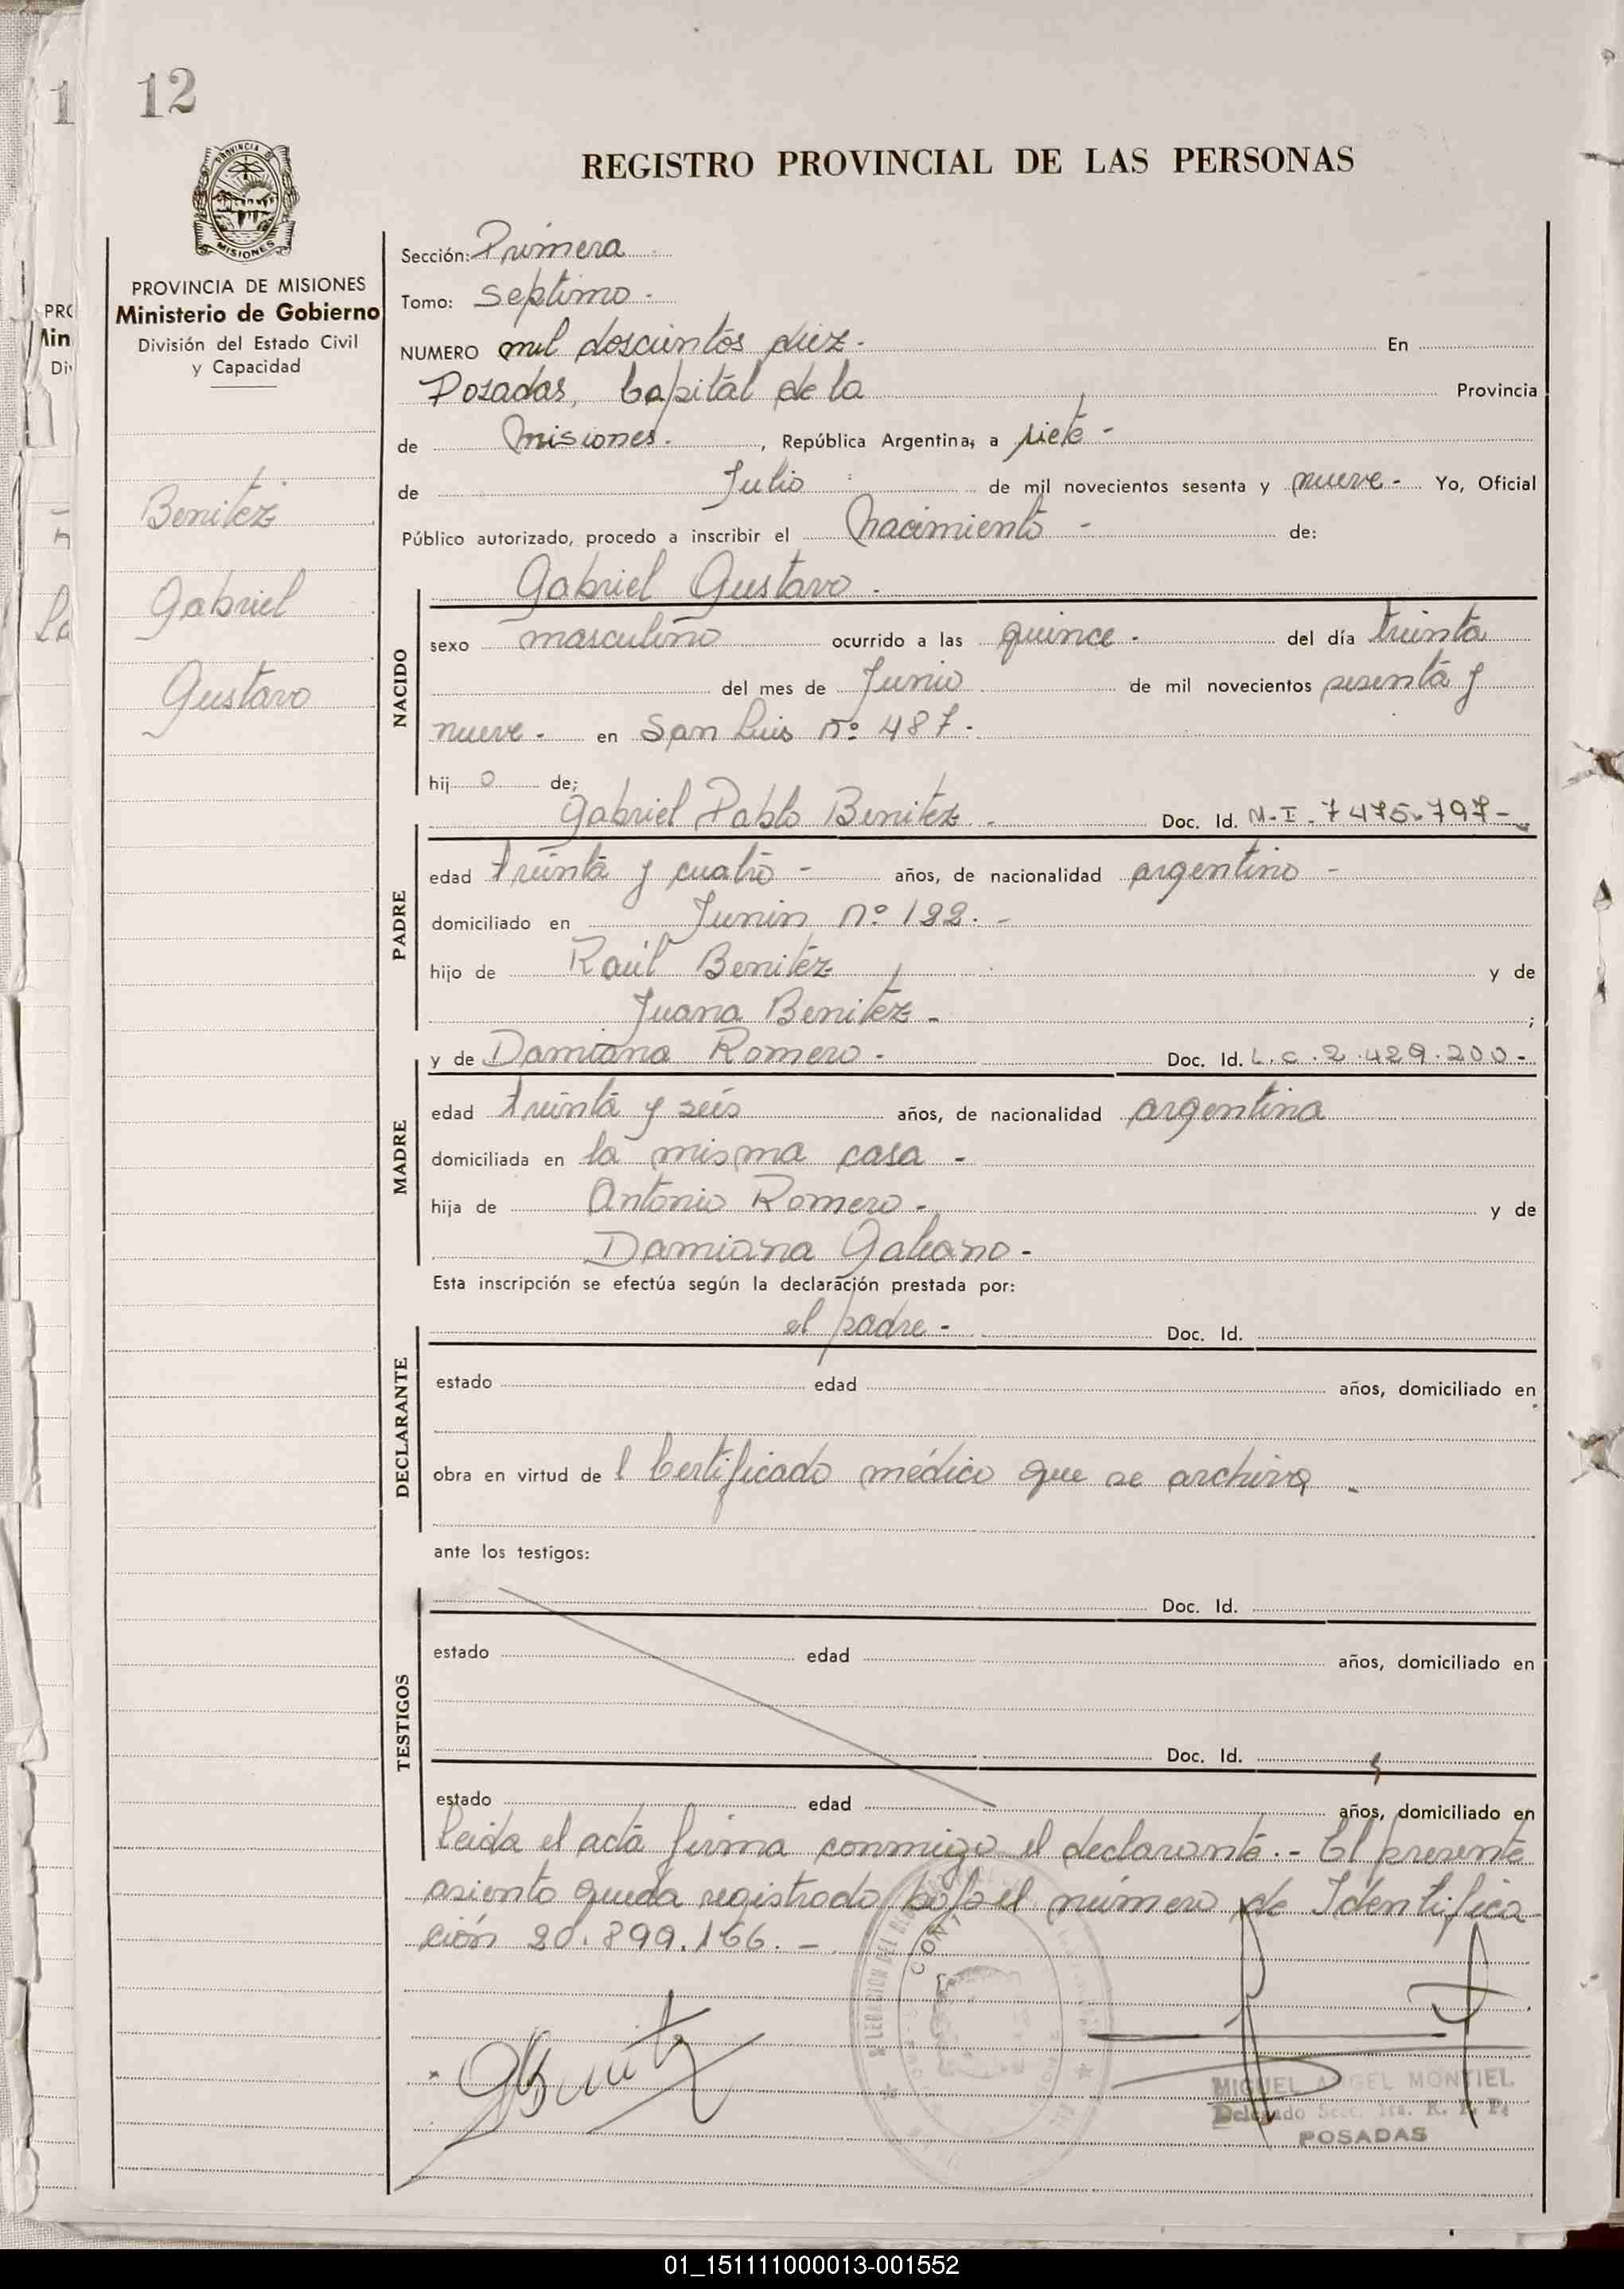 12
REGISTRO PROVINCIAL DE LAS PERSONAS
PROVINCIA DE MISIONES
Ministerio de Gobierno
División del Estado Civil
y Capacidad
Benitez
Gabriel
Gustavo
Sección: Primera
Tomo: Septimo.
NUMERO mil doscientos diez. En
Posadas, Capital de la Provincia
de Misiones. , República Argentina, a siete -
de Julio de mil novecientos sesenta y nueve - Yo, Oficial
Público autorizado, procedo a inscribir el Nacimiento - de:
Gabriel Gustavo.
NACIDO
sexo masculino ocurrido a las quince - del día treinta
del mes de Junio de mil novecientos sesenta y
nueve - en San Luis nº 487 -
hij o de;
Gabriel Pablo Benitez - Doc. Id. M.I. 7475.797 -
PADRE
edad treinta y cuatro - años, de nacionalidad argentino -
domiciliado en Junin nº 122. -
hijo de Raúl Benitez y de
Juana Benitez - ;
y de Damiana Romero - Doc. Id. L.C. 2.429.200 -
MADRE
edad treinta y seis años, de nacionalidad argentina
domiciliada en la misma casa -
hija de Antonio Romero - y de
Damiana Galeano -
Esta inscripción se efectúa según la declaración prestada por:
el padre - Doc. Id.
DECLARANTE
estado edad años, domiciliado en
obra en virtud de l Certificado médico que se archiva -
ante los testigos:
Doc. Id.
TESTIGOS
estado edad años, domiciliado en
Doc. Id.
estado edad años, domiciliado en
Leida el acta firma conmigo el declarante. - El presente
asiento queda registrado bajo el número de Identifica
ción 20.899.166. -
MIGUEL ANGEL MONTIEL
Delegado Secc. 1ra. R. P. P.
POSADAS
01_151111000013-001552